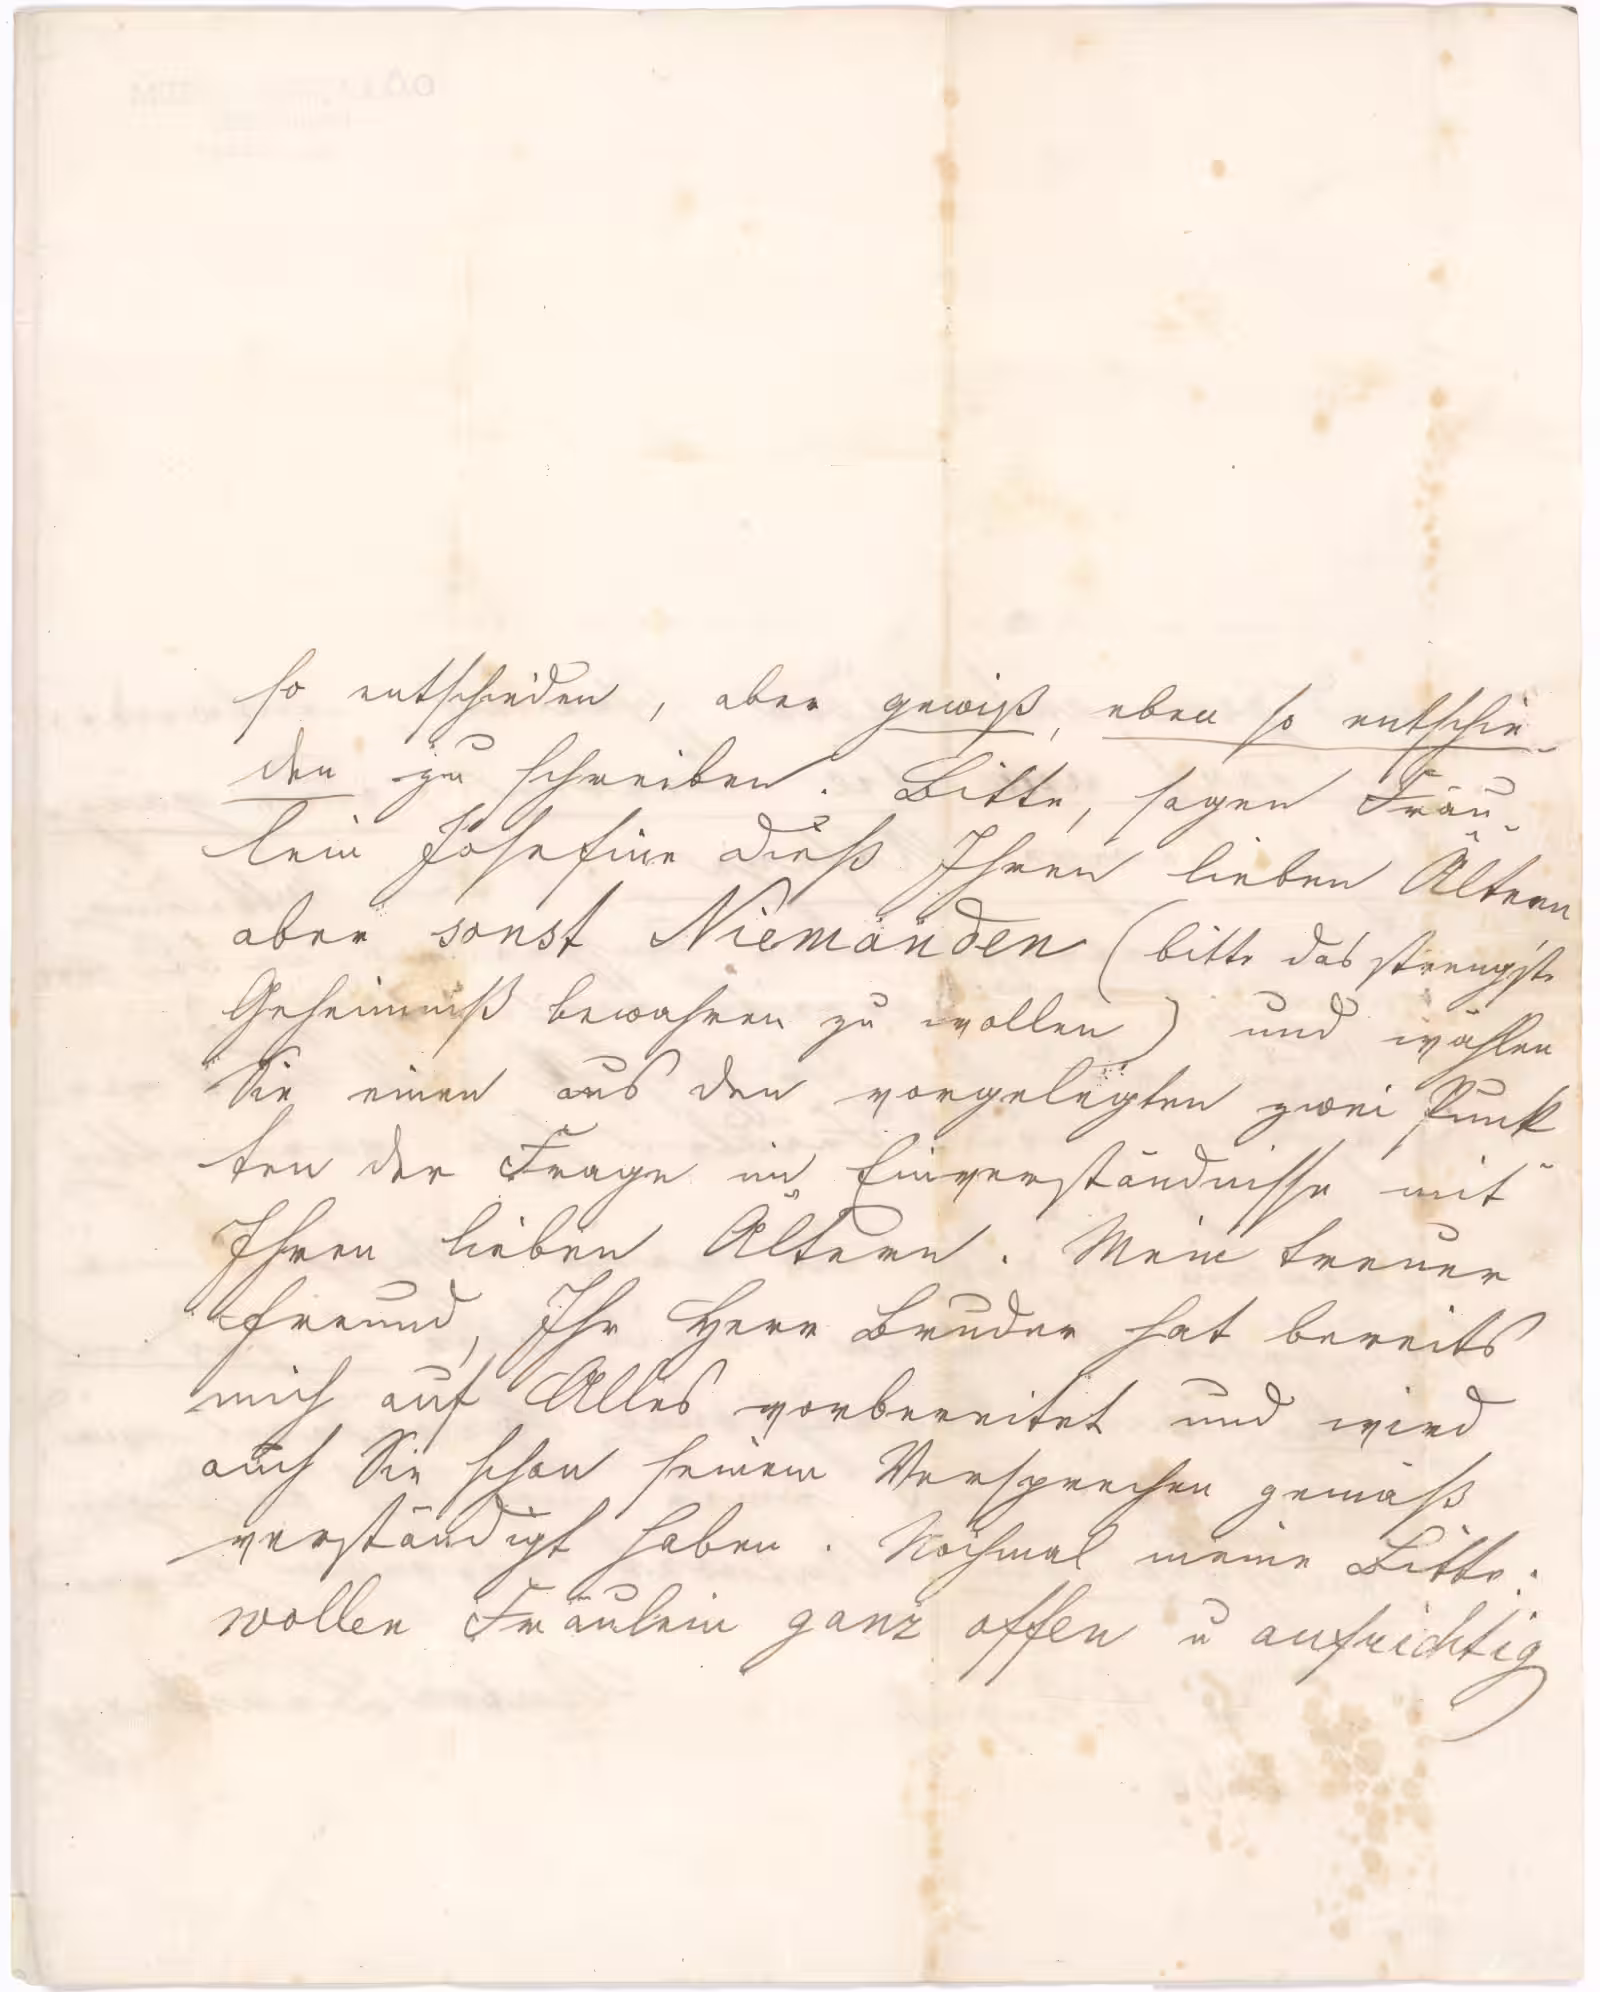 so entschieden, aber gewiß, eben so entschie-
den zu schreiben. Bitte, sagen Fräu-
lein Josefine dieß Ihren lieben Ältern
aber sonst Niemanden (bitte das strengste
Geheimniß bewahren zu wollen) und wählen
Sie einen aus den vorgelegten zwei Punk-
ten der Frage im Einverständnisse mit
Ihren lieben Ältern. Mein treuer
Freund, Ihr Herr Bruder hat bereits
mich auf Alles vorbereitet und wird
auch Sie schon seinem Versprechen gemäß
verständigt haben. Nochmal meine Bitte:
wollen Fräulein ganz offen u aufrichtig